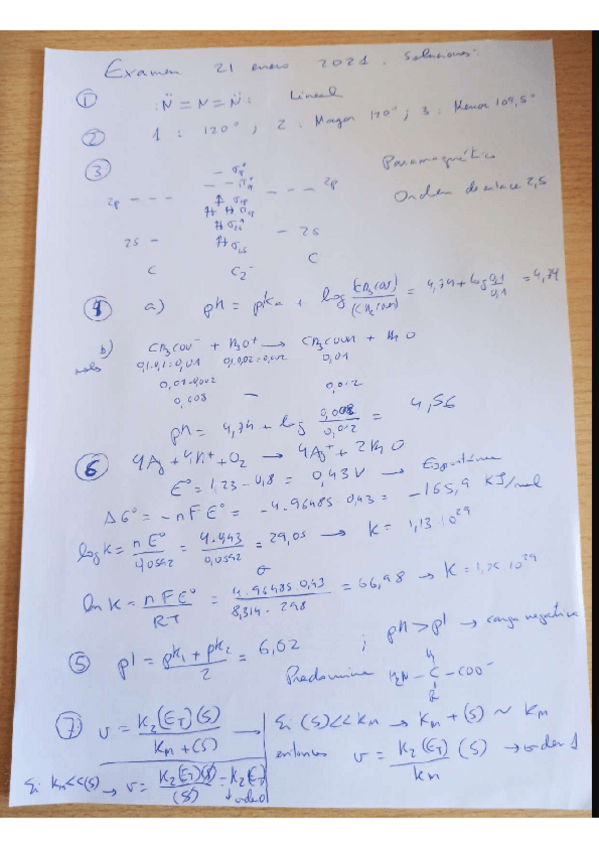 Examen 21 enero 2021. Soluciones.
① :N̈ = N = N̈: Lineal
② 1 : 120° ; 2 : Mayor 120° ; 3 : Menor 109,5°
③ Paramagnético
2p - - - - - - 2p
Orden de enlace 2,5
2s - - 2s
C C₂⁻ C
④ a) pH = pKa + log (CH₃COO⁻)/(CH₃COOH) = 4,74 + log 0,1/0,1 = 4,74
b) CH₃COO⁻ + H₃O⁺ → CH₃COOH + H₂O
moles 0,1·0,1=0,01 0,1·0,02=0,002 0,01
0,01-0,002 — 0,012
0,008
pH = 4,74 + log 0,008/0,012 = 4,56
⑥ 4Ag + 4H⁺ + O₂ → 4Ag⁺ + 2H₂O
E° = 1,23 - 0,8 = 0,43 V → Espontánea
ΔG° = -nFE° = -4·96485·0,43 = -165,9 KJ/mol
log K = nE°/0,0592 = 4·0,43/0,0592 = 29,05 → K = 1,13·10²⁹
ln K = nFE°/RT = 4·96485·0,43/8,314·298 = 66,98 → K = 1,25·10²⁹
⑤ pI = (pK₁ + pK₂)/2 = 6,02 ; pH > pI → carga negativa
Predomina H₂N - C - COO⁻
⑦ v = K₂(E_T)(S)/(K_M + (S)) → Si (S) << K_M → K_M + (S) ~ K_M
entonces v = K₂(E_T)(S)/K_M → orden 1
Si K_M << (S) → v = K₂(E_T)(S)/(S) = K₂(E_T)
orden 0